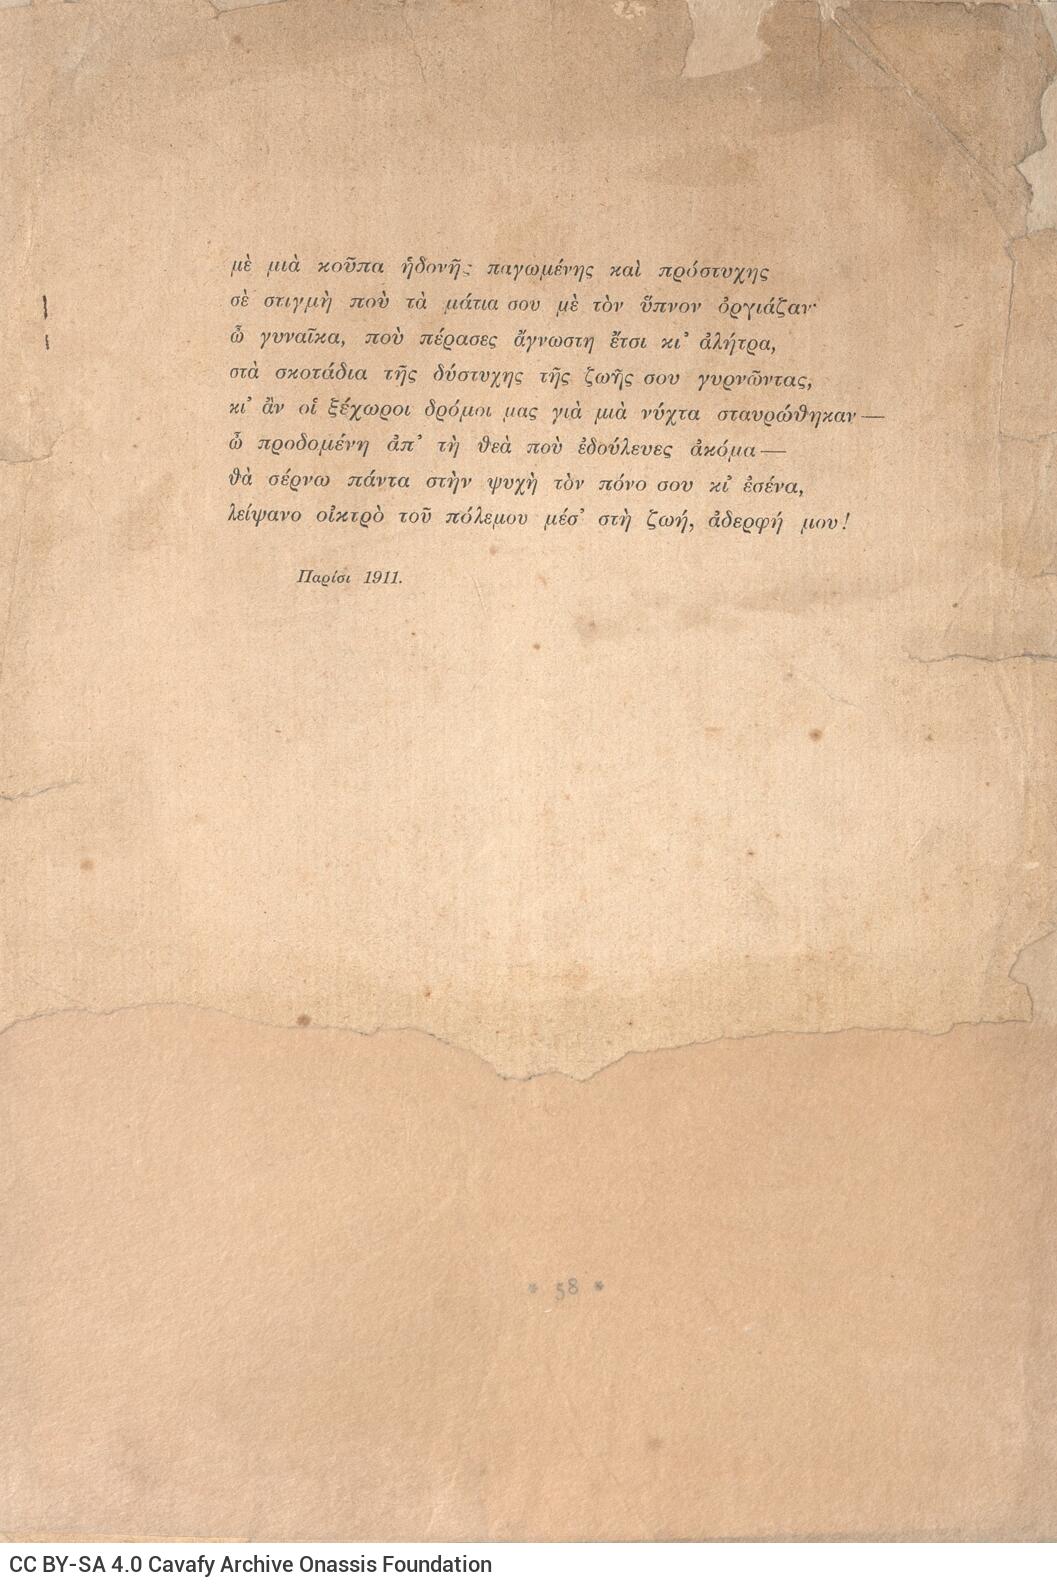 μὲ μιὰ κοῦπα ἡδονῆς παγωμένης καὶ πρόστυχης
σὲ στιγμὴ ποὺ τὰ μάτια σου μὲ τὸν ὕπνον ὀργιάζαν·
ὦ γυναῖκα, ποὺ πέρασες ἄγνωστη ἔτσι κι' ἀλήτρα,
στὰ σκοτάδια τῆς δύστυχης τῆς ζωῆς σου γυρνῶντας,
κι' ἂν οἱ ξέχωροι δρόμοι μας γιὰ μιὰ νύχτα σταυρώθηκαν—
ὦ προδομένη ἀπ' τὴ θεὰ ποὺ ἐδούλευες ἀκόμα—
θὰ σέρνω πάντα στὴν ψυχὴ τὸν πόνο σου κι' ἐσένα,
λείψανο οἰκτρὸ τοῦ πόλεμου μέσ' στὴ ζωή, ἀδερφή μου!
Παρίσι 1911.
* 58 *
CC BY-SA 4.0 Cavafy Archive Onassis Foundation